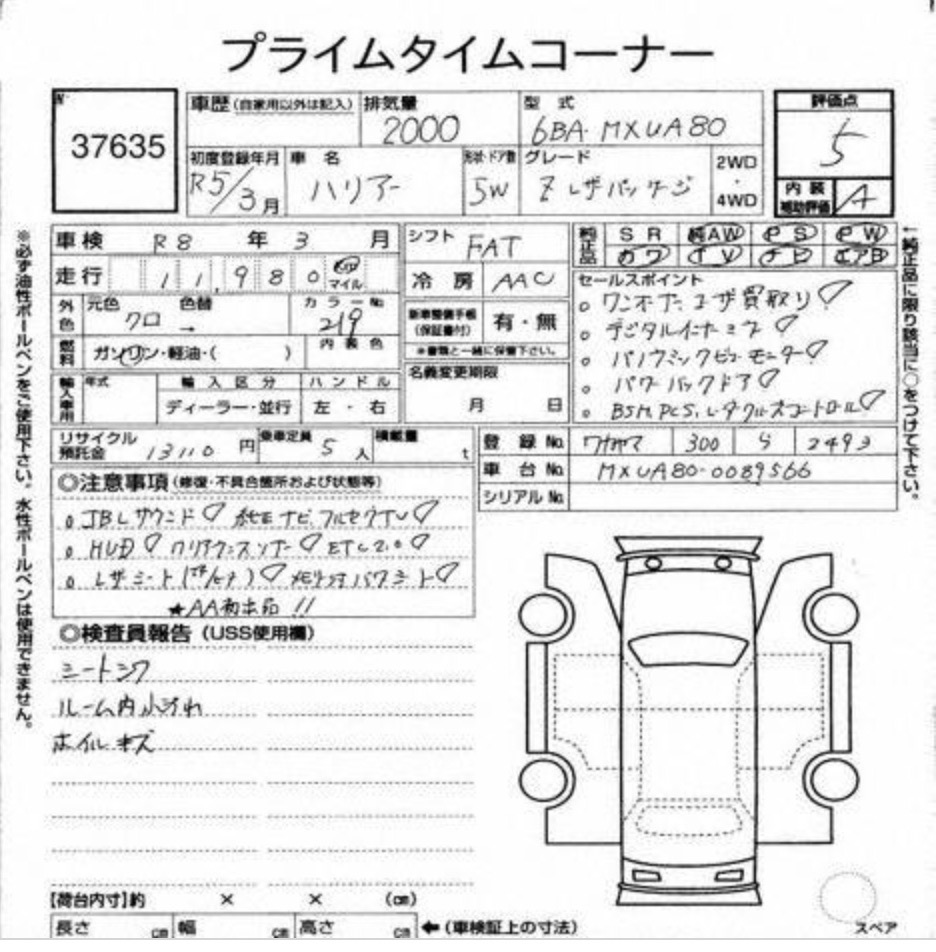 プライムタイムコーナー
No. 37635
車歴(自家用以外は記入)
排気量 2000
型式 6BA-MXUA80
評価点 5
初度登録年月 R5/3月
車名 ハリアー
形状・ドア数 5W
グレード Z レザパッケージ
2WD・4WD
内装補助評価 A
車検 R8年 3月
シフト FAT
純正品 SR 純AW PS PW
カワ TV ナビ エアB
走行 11,980 km マイル
冷房 AAC
セールスポイント
外色 元色 クロ 色替 →
カラーNo. 219
新車整備手帳(保証書付) 有・無
※書類と一緒に保管下さい。
。ワンオーナー ユーザ買取り
。デジタルインナーミラー
。パノラミックビューモニター
。パワーバックドア
。BSM, PCS, レーダクルーズコントロール
燃料 ガソリン・軽油・( )
内装色
名義変更期限 月 日
輸入車用 年式 輸入区分 ハンドル
ディーラー・並行 左・右
リサイクル預託金 13110円
乗車定員 5人
積載量 t
登録No. 300 2493
車台No. MXUA80-0089566
シリアルNo.
◎注意事項(修復・不具合箇所および状態等)
。JBLサウンド 純正ナビ フルセグTV
。HUD クリアランスソナー ETC2.0
。レザーシート メモリ付パワーシート
★AA初出品!!
◎検査員報告(USS使用欄)
シートシワ
ルーム内小汚れ
ホイルキズ
【荷台内寸】約 × × (cm)
長さ cm 幅 cm 高さ cm ←(車検証上の寸法)
スペア
※必ず油性ボールペンをご使用下さい。水性ボールペンは使用できません。
←純正品に限り該当に○をつけて下さい。